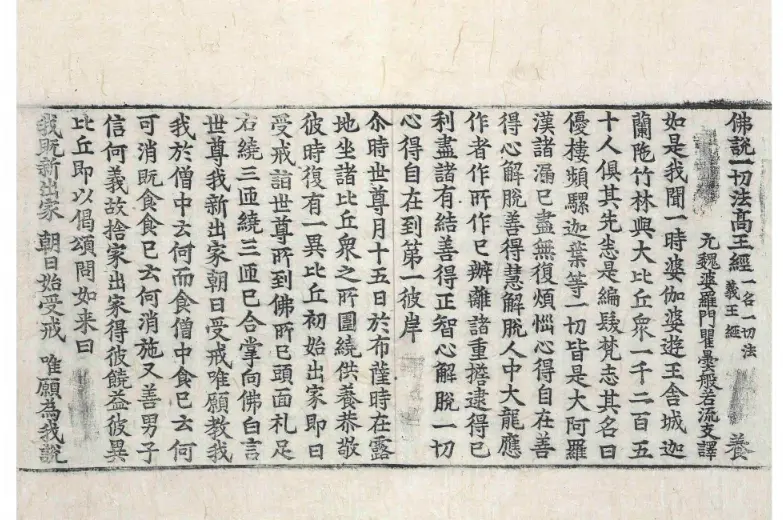 佛説一切法髙王經 一名一切法義王經 養
元魏婆羅門瞿曇般若流支譯
如是我聞一時婆伽婆遊王舍城迦
蘭陁竹林與大比丘衆一千二百五
十人俱其先悉是編髮梵志其名曰
優樓頻騾迦葉等一切皆是大阿羅
漢諸漏已盡無復煩惱心得自在善
得心解脫善得慧解脫人中大龍應
作者作所作已辦離諸重擔逮得已
利盡諸有結善得正智心解脫一切
心得自在到第一彼岸
尒時世尊月十五日於布薩時在露
地坐諸比丘衆之所圍繞供養恭敬
彼時復有一異比丘初始出家即日
受戒詣世尊所到佛所已頭面礼足
右繞三匝繞三匝已合掌向佛白言
世尊我新出家朝日受戒唯願教我
我於僧中云何而食僧中食已云何
可消既食食已云何消施又善男子
信何義故捨家出家得彼饒益彼異
比丘即以偈頌問如来曰
我既新出家 朝日始受戒 唯願為我說